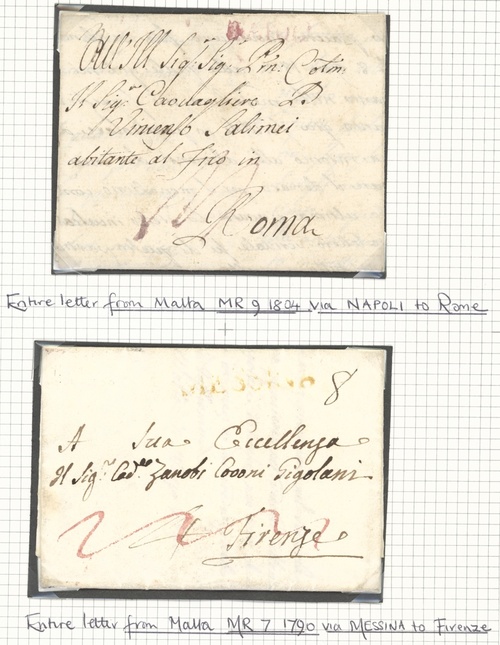 All'Ill Sigr Sigr Prn Colmo
Il Sigr Cavagliere D.
Vincenso Salimei
abitante al in
Roma
Entire letter from Malta MR 9 1804 via NAPOLI to Rome
8
A Sua Eccellenza
Il Sigr Cavre Zanobi Covoni Gigolani
Firenze
Entire letter from Malta MR 7 1790 via MESSINA to Firenze